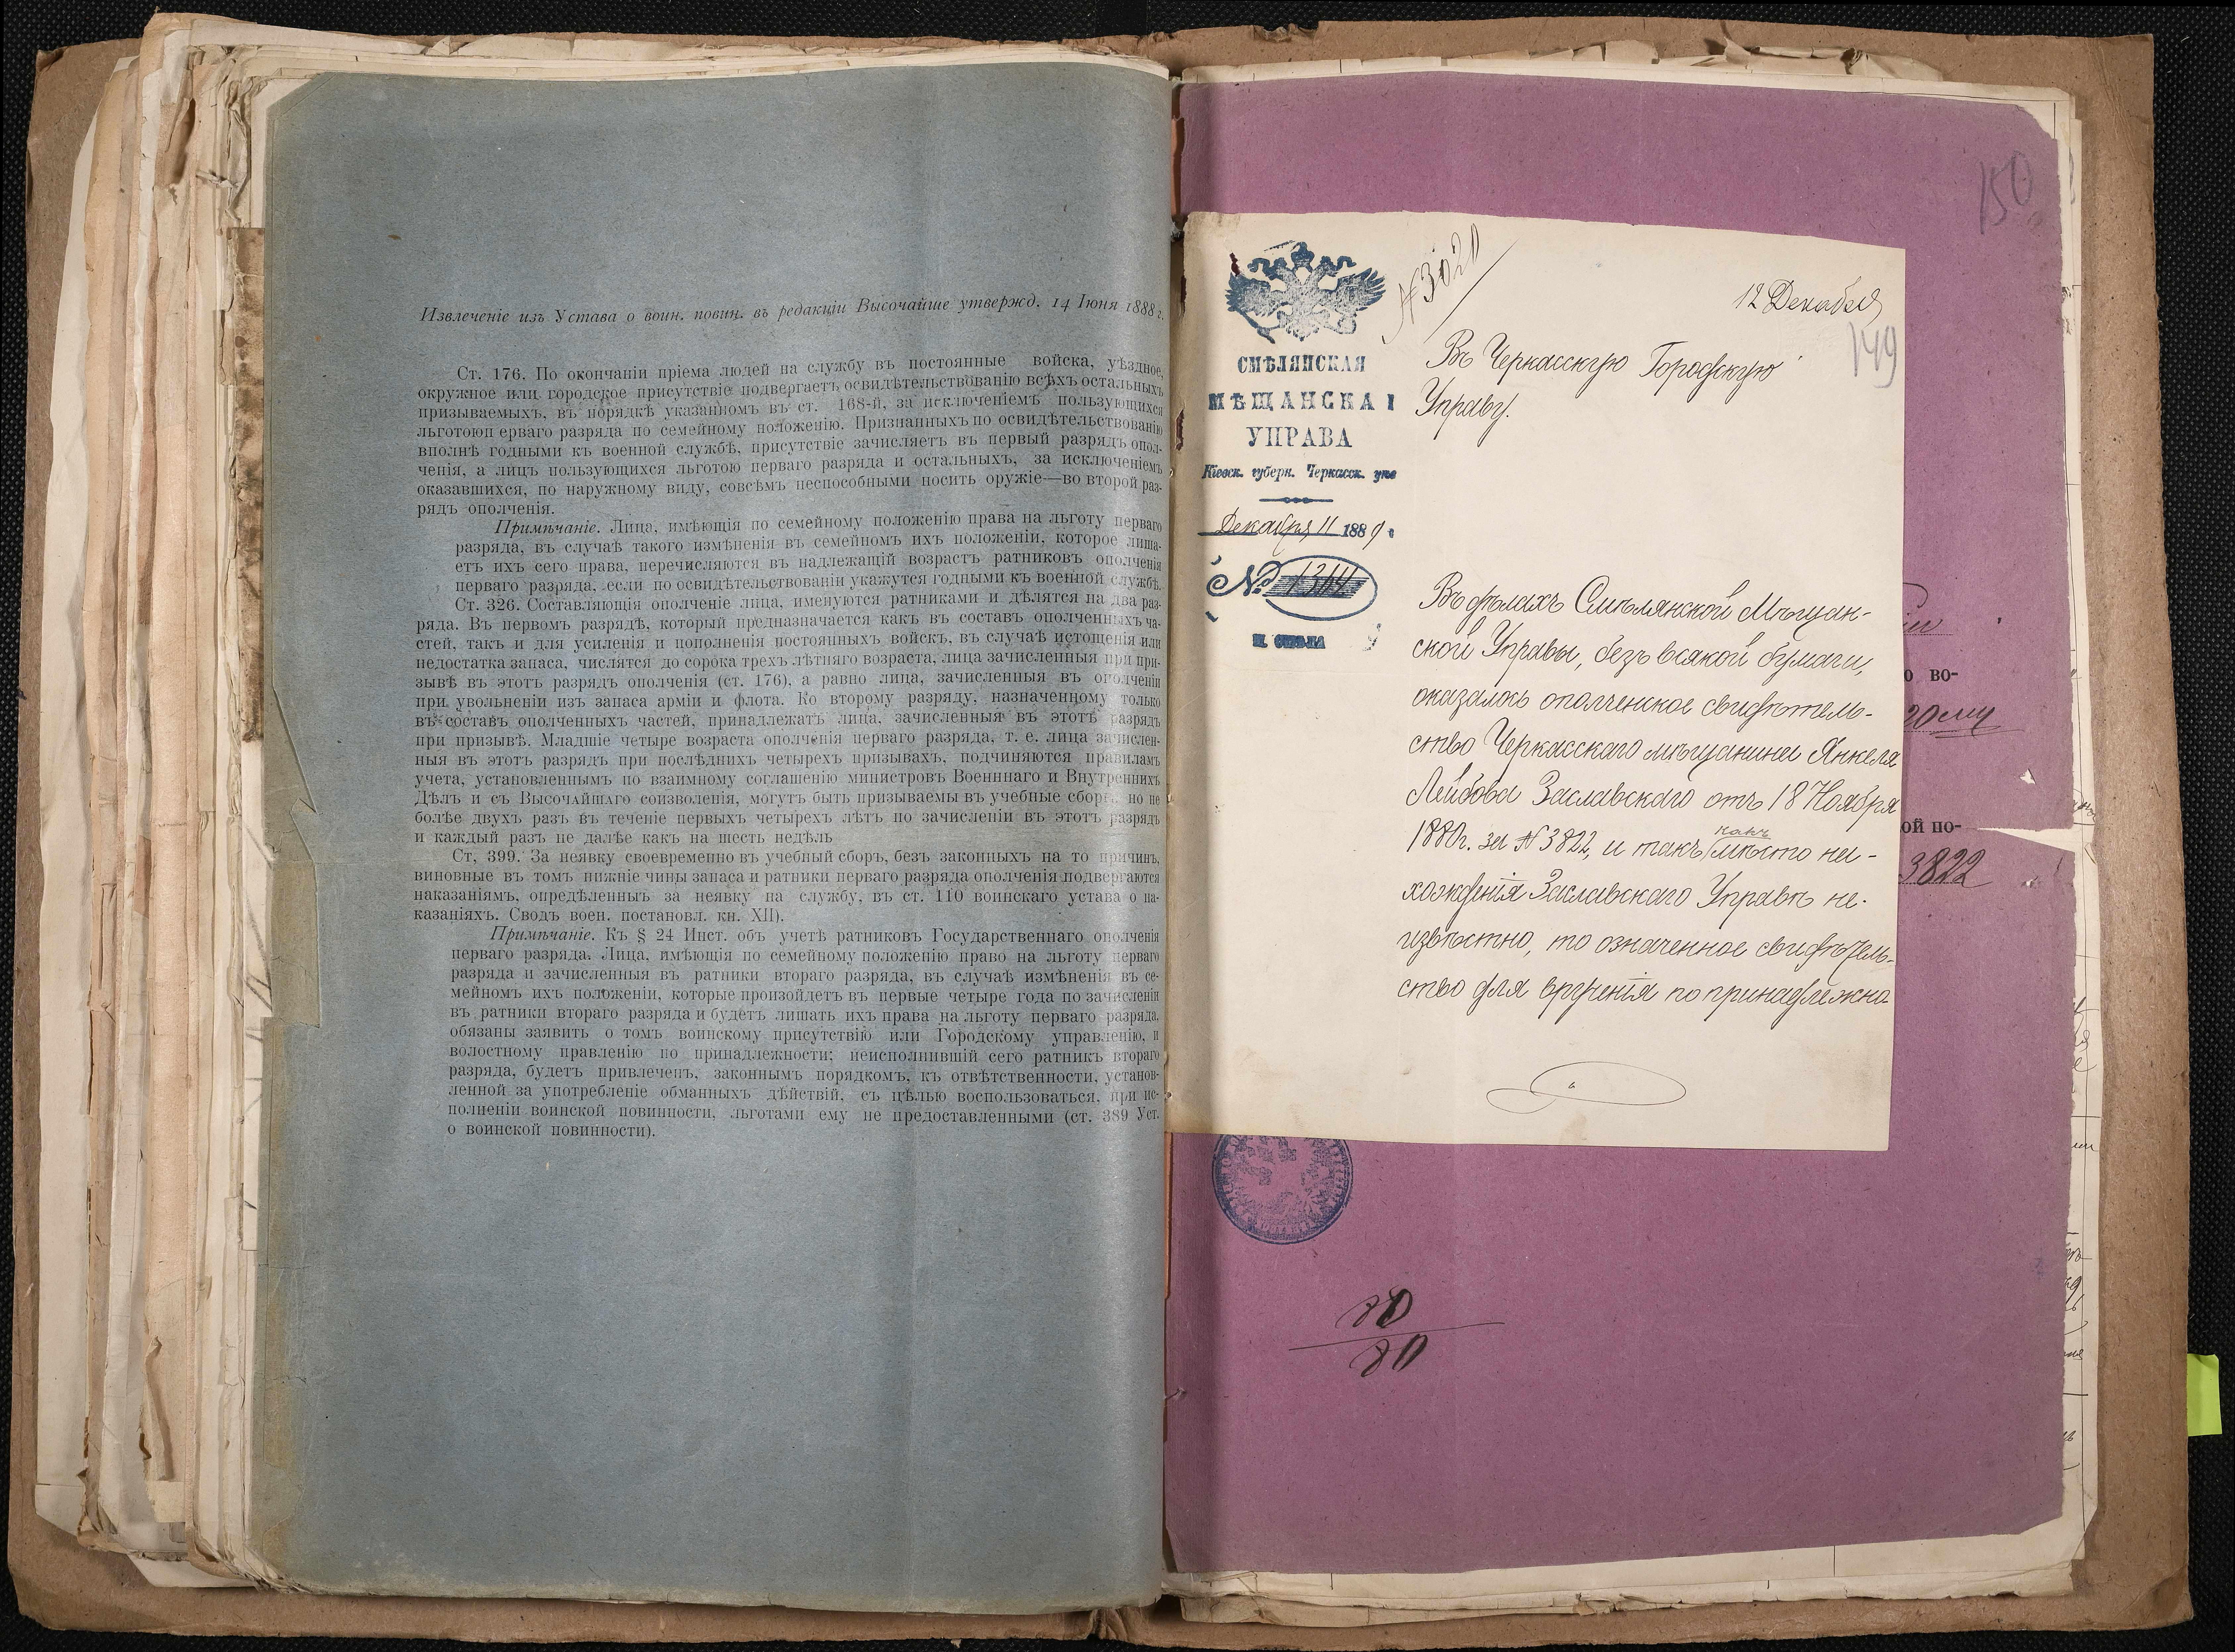 Извлеченіе изъ Устава о воин. повин. въ редакціи Высочайше утвержд. 14 Іюня 1888 г.
Ст. 176. По окончаніи пріема людей на службу въ постоянные войска, уѣздное,
окружное или городское присутствіе подвергаетъ освидѣтельствованію всѣхъ остальныхъ
призываемыхъ, въ порядкѣ указанномъ въ ст. 168-й, за исключеніемъ пользующихся
льготоюп ерваго разряда по семейному положенію. Признанныхъ по освидѣтельствованію
вполнѣ годными къ военной службѣ, присутствіе зачисляетъ въ первый разрядъ опол-
ченія, а лицъ пользующихся льготою перваго разряда и остальныхъ, за исключеніемъ
оказавшихся, по наружному виду, совсѣмъ неспособными носить оружіе—во второй раз-
рядъ ополченія.
Примѣчаніе. Лица, имѣющія по семейному положенію права на льготу перваго
разряда, въ случаѣ такого измѣненія въ семейномъ ихъ положеніи, которое лиша-
етъ ихъ сего права, перечисляются въ надлежащій возрастъ ратниковъ ополченія
перваго разряда, если по освидѣтельствованіи укажутся годными къ военной службѣ.
Ст. 326. Составляющія ополченіе лица, именуются ратниками и дѣлятся на два раз-
ряда. Въ первомъ разрядѣ, который предназначается какъ въ составъ ополченныхъ ча-
стей, такъ и для усиленія и пополненія постоянныхъ войскъ, въ случаѣ истощенія или
недостатка запаса, числятся до сорока трехъ лѣтняго возраста, лица зачисленныя при при-
зывѣ въ этотъ разрядъ ополченія (ст. 176), а равно лица, зачисленныя въ ополченіи
при увольненіи изъ запаса арміи и флота. Ко второму разряду, назначенному только
въ составъ ополченныхъ частей, принадлежатъ лица, зачисленныя въ этотъ разрядъ
при призывѣ. Младшіе четыре возраста ополченія перваго разряда, т. е. лица зачислен-
ныя въ этотъ разрядъ при послѣднихъ четырехъ призывахъ, подчиняются правиламъ
учета, установленнымъ по взаимному соглашенію министровъ Военннаго и Внутреннихъ
Дѣлъ и съ Высочайшаго соизволенія, могутъ быть призываемы въ учебные сборы, но не
болѣе двухъ разъ въ теченіе первыхъ четырехъ лѣтъ по зачисленіи въ этотъ разрядъ
и каждый разъ не далѣе какъ на шесть недѣль
Ст, 399. За неявку своевременно въ учебный сборъ, безъ законныхъ на то причинъ,
виновные въ томъ нижніе чины запаса и ратники перваго разряда ополченія подвергаются
наказаніямъ, опредѣленнымъ за неявку на службу, въ ст. 110 воинскаго устава о на-
казаніяхъ. Сводъ воен. постановл. кн. XII).
Примѣчаніе. Къ § 24 Инст. объ учетѣ ратниковъ Государственнаго ополченія
перваго разряда. Лица, имѣющія по семейному положенію право на льготу перваго
разряда и зачисленныя въ ратники втораго разряда, въ случаѣ измѣненія въ се-
мейномъ ихъ положеніи, которые произойдетъ въ первые четыре года по зачисленіи
въ ратники втораго разряда и будетъ лишать ихъ права на льготу перваго разряда,
обязаны заявить о томъ воинскому присутствію или Городскому управленію, и
волостному правленію по принадлежности; неисполнившій сего ратникъ втораго
разряда, будетъ привлеченъ, законнымъ порядкомъ, къ отвѣтственности, установ-
ленной за употребленіе обманныхъ дѣйствій, съ цѣлью воспользоваться, при ис-
полненіи воинской повинности, льготами ему не предоставленными (ст. 389 Уст.
о воинской повинности).
150
№3020
12 Декабря
149
СМѢЛЯНСКАЯ
МѢЩАНСКАЯ
УПРАВА
Кіевск. губерн. Черкасск. уѣз
Декабря 11 1889 г
№ 1314
М. СМѢЛА
Въ Черкасскую Городскую
Управу.
Въ дѣлахъ Смѣлянской Мѣщан-
ской Управы, безъ всякой бумаги,
оказалось ополченское свидѣтель-
ство Черкасскаго мѣщанина Янкеля
Лейбова Заславскаго отъ 18 Ноября
1880г. за №3822, и такъ какъ мѣсто на-
хожденія Заславскаго Управѣ не-
извѣстно, то означенное свидѣтель-
ство для врученія по принадлежно
о во-
20му
ой по-
3822
80
80